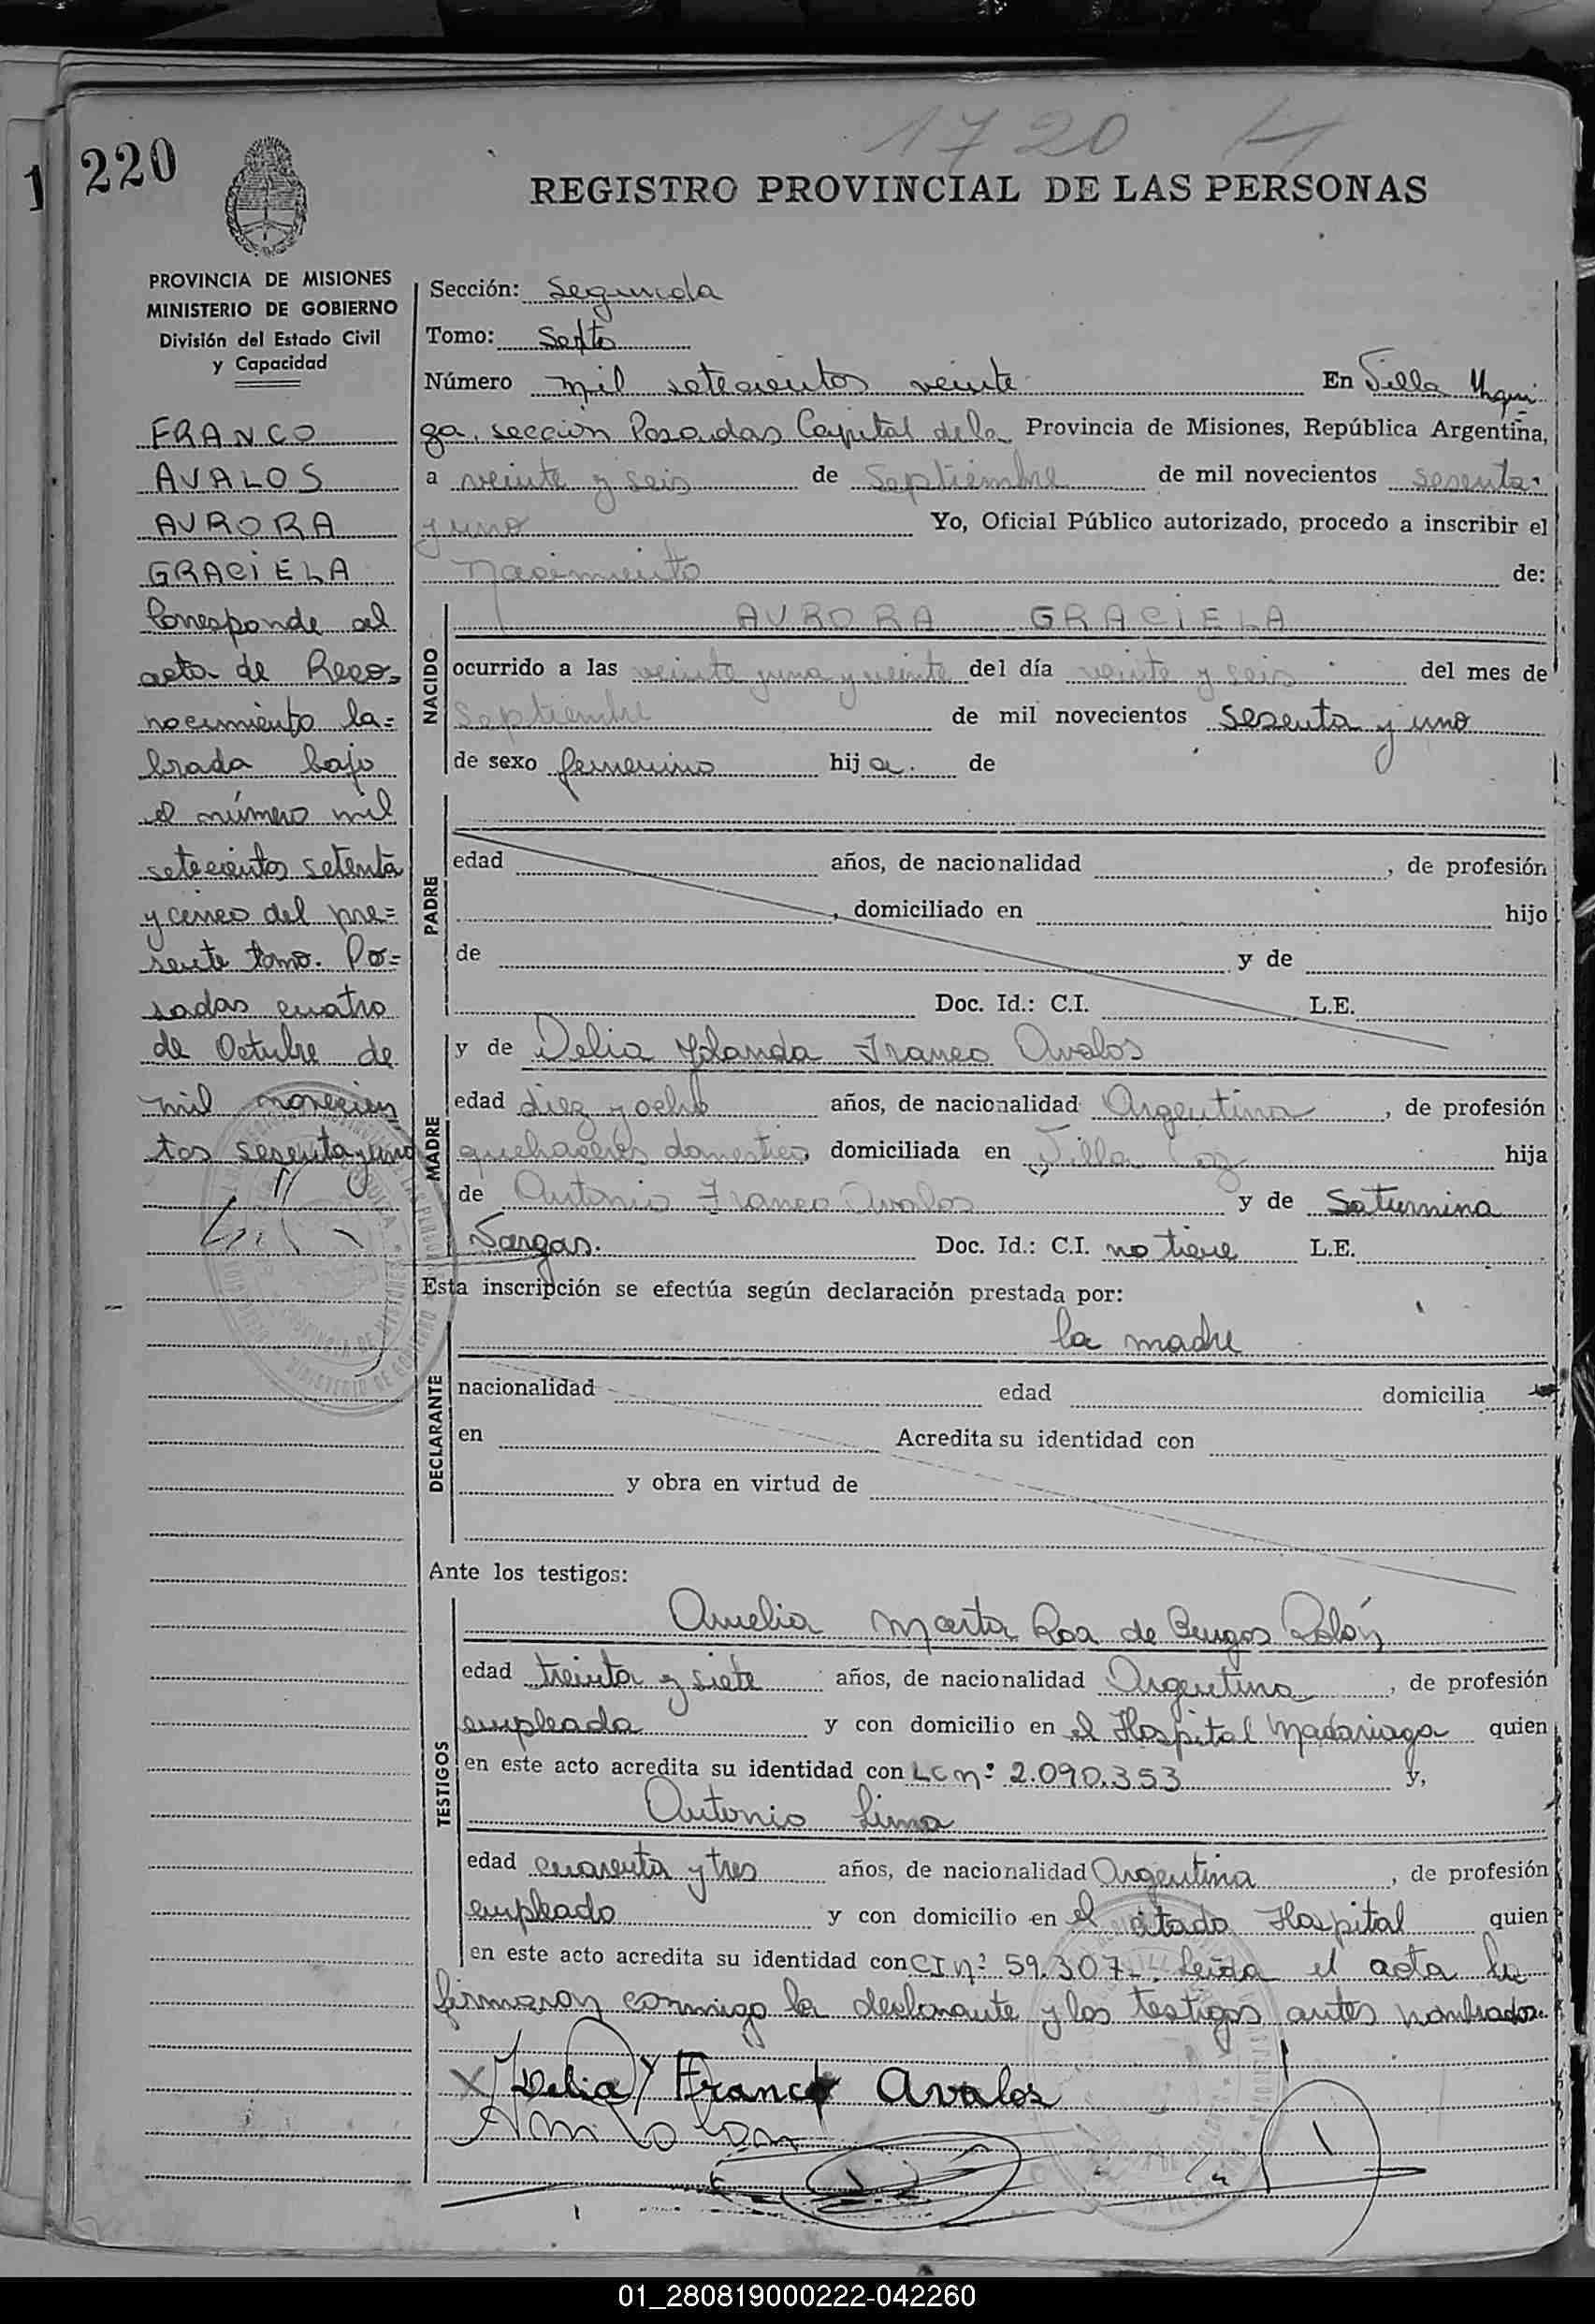 1720
1
220
REGISTRO PROVINCIAL DE LAS PERSONAS
PROVINCIA DE MISIONES
MINISTERIO DE GOBIERNO
División del Estado Civil
y Capacidad
FRANCO
AVALOS
AURORA
GRACIELA
Corresponde al
acta de Reco=
nocimiento la=
brada bajo
el número mil
setecientos setenta
y cinco del pre=
sente tomo. Po=
sadas cuatro
de Octubre de
mil novecien
tos sesenta y uno
Sección: Segunda
Tomo: Sexto
Número mil setecientos veinte En Villa Urqui
za, sección Posadas Capital de la Provincia de Misiones, República Argentina,
a veinte y seis de Septiembre de mil novecientos sesenta
y uno Yo, Oficial Público autorizado, procedo a inscribir el
Nacimiento de:
NACIDO
AURORA GRACIELA
ocurrido a las veinte y una y veinte del día veinte y seis del mes de
Septiembre de mil novecientos sesenta y uno
de sexo femenino hij a. de
PADRE
edad años, de nacionalidad , de profesión
, domiciliado en hijo
de y de
Doc. Id.: C.I. L.E.
MADRE
y de Delia Yolanda Franco Avalos
edad diez y ocho años, de nacionalidad Argentina , de profesión
quehaceres domestico, domiciliada en Villa hija
de Antonio Franco Avalos y de Saturnina
Vargas. Doc. Id.: C.I. no tiene L.E.
Esta inscripción se efectúa según declaración prestada por:
DECLARANTE
la madre
nacionalidad edad domicilia
en Acredita su identidad con
y obra en virtud de
Ante los testigos:
TESTIGOS
Amelia Marta Roa de Burgos Rolón
edad treinta y siete años, de nacionalidad Argentina , de profesión
empleada y con domicilio en el Hospital Madariaga quien
en este acto acredita su identidad con LC nº 2.090.353 y,
Antonio Lima
edad cuarenta y tres años, de nacionalidad Argentina , de profesión
empleado y con domicilio en el citado Hospital quien
en este acto acredita su identidad con CI nº 59.307_. Leida el acta la
firmaron conmigo la declarante y los testigos antes nombrados.
X Delia Y Franco Avalos
01_280819000222-042260